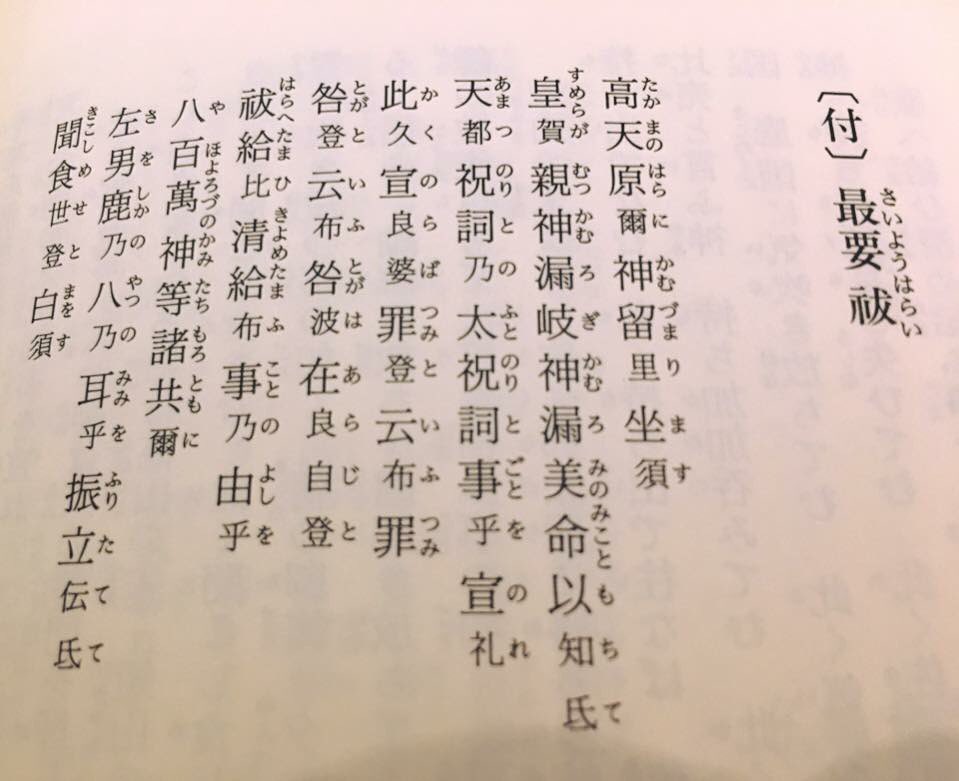 〔付〕最要祓
さいようはらい
高天原爾神留里坐須
たかまのはらにかむづまります
皇賀親神漏岐神漏美命以知氐
すめらがむつかむろぎかむろみのみこともちて
天都祝詞乃太祝詞事乎宣礼
あまつのりとのふとのりとごとをのれ
此久宣良婆罪登云布罪
かくのらばつみといふつみ
咎登云布咎波在良自登
とがといふとがはあらじと
祓給比清給布事乃由乎
はらへたまひきよめたまふことのよしを
八百萬神等諸共爾
やほよろづのかみたちもろともに
左男鹿乃八乃耳乎振立伝氐
さをしかのやつのみみをふりたてて
聞食世登白須
きこしめせとまをす